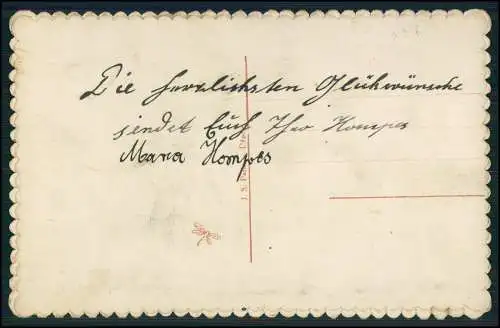 Die herzlichsten Glückwünsche
sendet Euch Theo Hompes
Maria Hompes